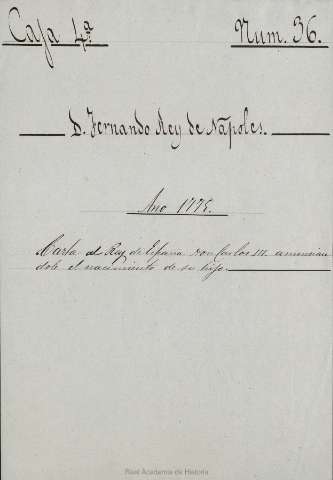 Caja 4ª
Num. 36.
D. Fernando Rey de Nápoles.
Año 1775.
Carta al Rey de España don Carlos III. anuncian
dole el nacimiento de su hijo.
Real Academia de Historia